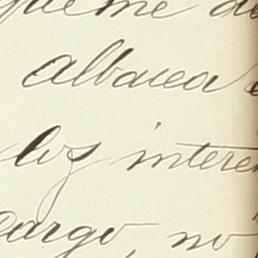 queme de
albacea
los intere
cargo, no